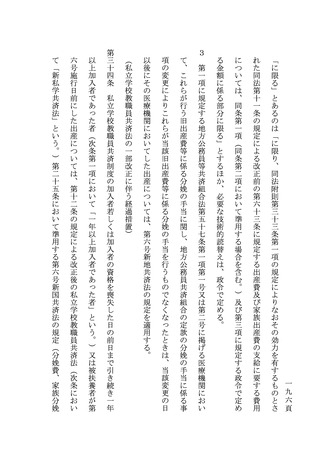 一九六頁
「に限る」とあるのは「に限り、同法附則第三十三条第一項の規定によりなおその効力を有するものとさ
れた同法第十一条の規定による改正前の第六十三条に規定する出産費及び家族出産費の支給に要する費用
については、同条第一項（同条第二項において準用する場合を含む。）及び第三項に規定する政令で定め
る金額に係る部分に限る」とするほか、必要な技術的読替えは、政令で定める。
３　第一項に規定する地方公務員等共済組合法第五十七条第一項第一号又は第二号に掲げる医療機関におい
て、これらが行う旧出産費等に係る分娩の手当に関し、地方公務員共済組合の定款の分娩の手当に係る事
項の変更によりこれらが当該旧出産費等に係る分娩の手当を行うものでなくなったときは、当該変更の日
以後にその医療機関においてした出産については、第六号新地共済法の規定を適用する。
（私立学校教職員共済法の一部改正に伴う経過措置）
第三十四条　私立学校教職員共済制度の加入者若しくは加入者の資格を喪失した日の前日まで引き続き一年
以上加入者であった者（次条第一項において「一年以上加入者であった者」という。）又は被扶養者が第
六号施行日前にした出産については、第十二条の規定による改正後の私立学校教職員共済法（次条におい
て「新私学共済法」という。）第二十五条において準用する第六号新国共済法の規定（分娩費、家族分娩